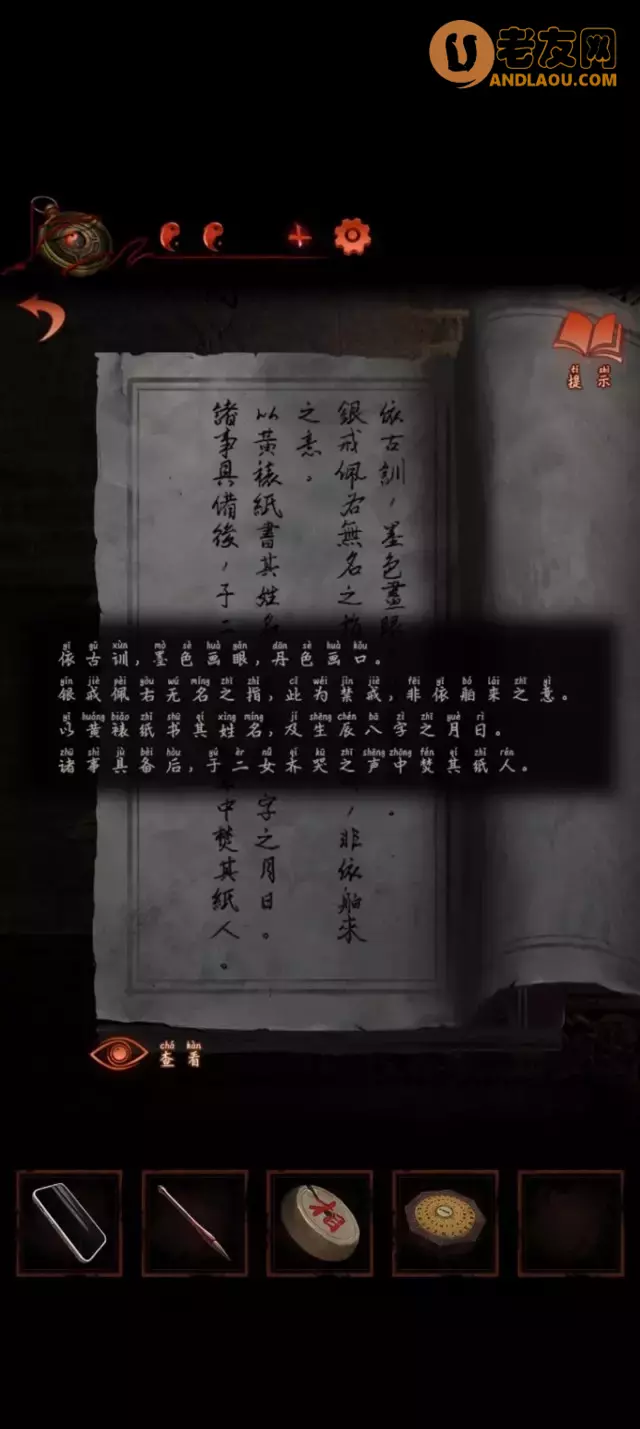 老友网
ANDLAOU.COM
tí shì
提示
依古訓，墨色畫眼
銀戒佩右無名之指，非依舶來
之意。
以黃裱紙書其姓名字之月日。
諸事具備後，于二中焚其紙人。
yī gǔ xùn mò sè huà yǎn dān sè huà kǒu
依古训，墨色画眼，丹色画口。
yín jiè pèi yòu wú míng zhī zhǐ cǐ wéi jìn jiè fēi yī bó lái zhī yì
银戒佩右无名之指，此为禁戒，非依舶来之意。
yǐ huáng biǎo zhǐ shū qí xìng míng jí shēng chén bā zì zhī yuè rì
以黄裱纸书其姓名，及生辰八字之月日。
zhū shì jù bèi hòu yú èr nǚ qí kū zhī shēng zhōng fén qí zhǐ rén
诸事具备后，于二女齐哭之声中焚其纸人。
chá kàn
查看